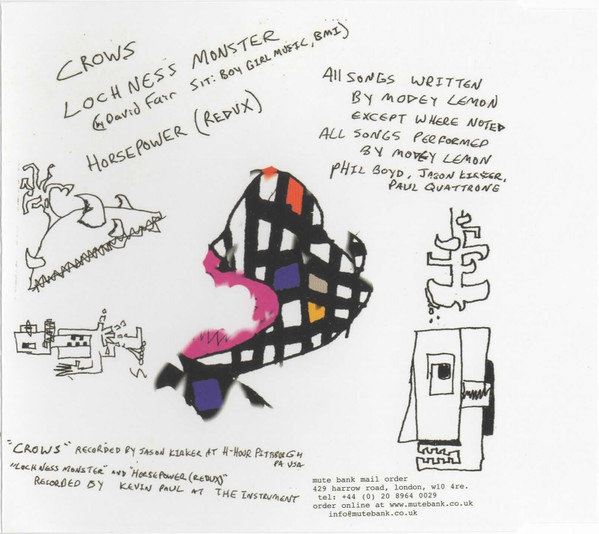 CROWS
LOCHNESS MONSTER
(David Fair Sit: Boy Girl Music, BMI)
HORSEPOWER (REDUX)
All SONGS WRITTEN
BY MODEY LEMON
EXCEPT WHERE NOTED
ALL SONGS PERFORMED
BY MODEY LEMON
PHIL BOYD, JASON KIRKER,
PAUL QUATTRONE
"CROWS" RECORDED BY JASON KIRKER AT H-HOUR PITTSBURGH
PA USA
"LOCHNESS MONSTER" AND "HORSEPOWER (REDUX)"
RECORDED BY KEVIN PAUL AT THE INSTRUMENT
mute bank mail order
429 harrow road, london, w10 4re.
tel: +44 (0) 20 8964 0029
order online at www.mutebank.co.uk
info@mutebank.co.uk